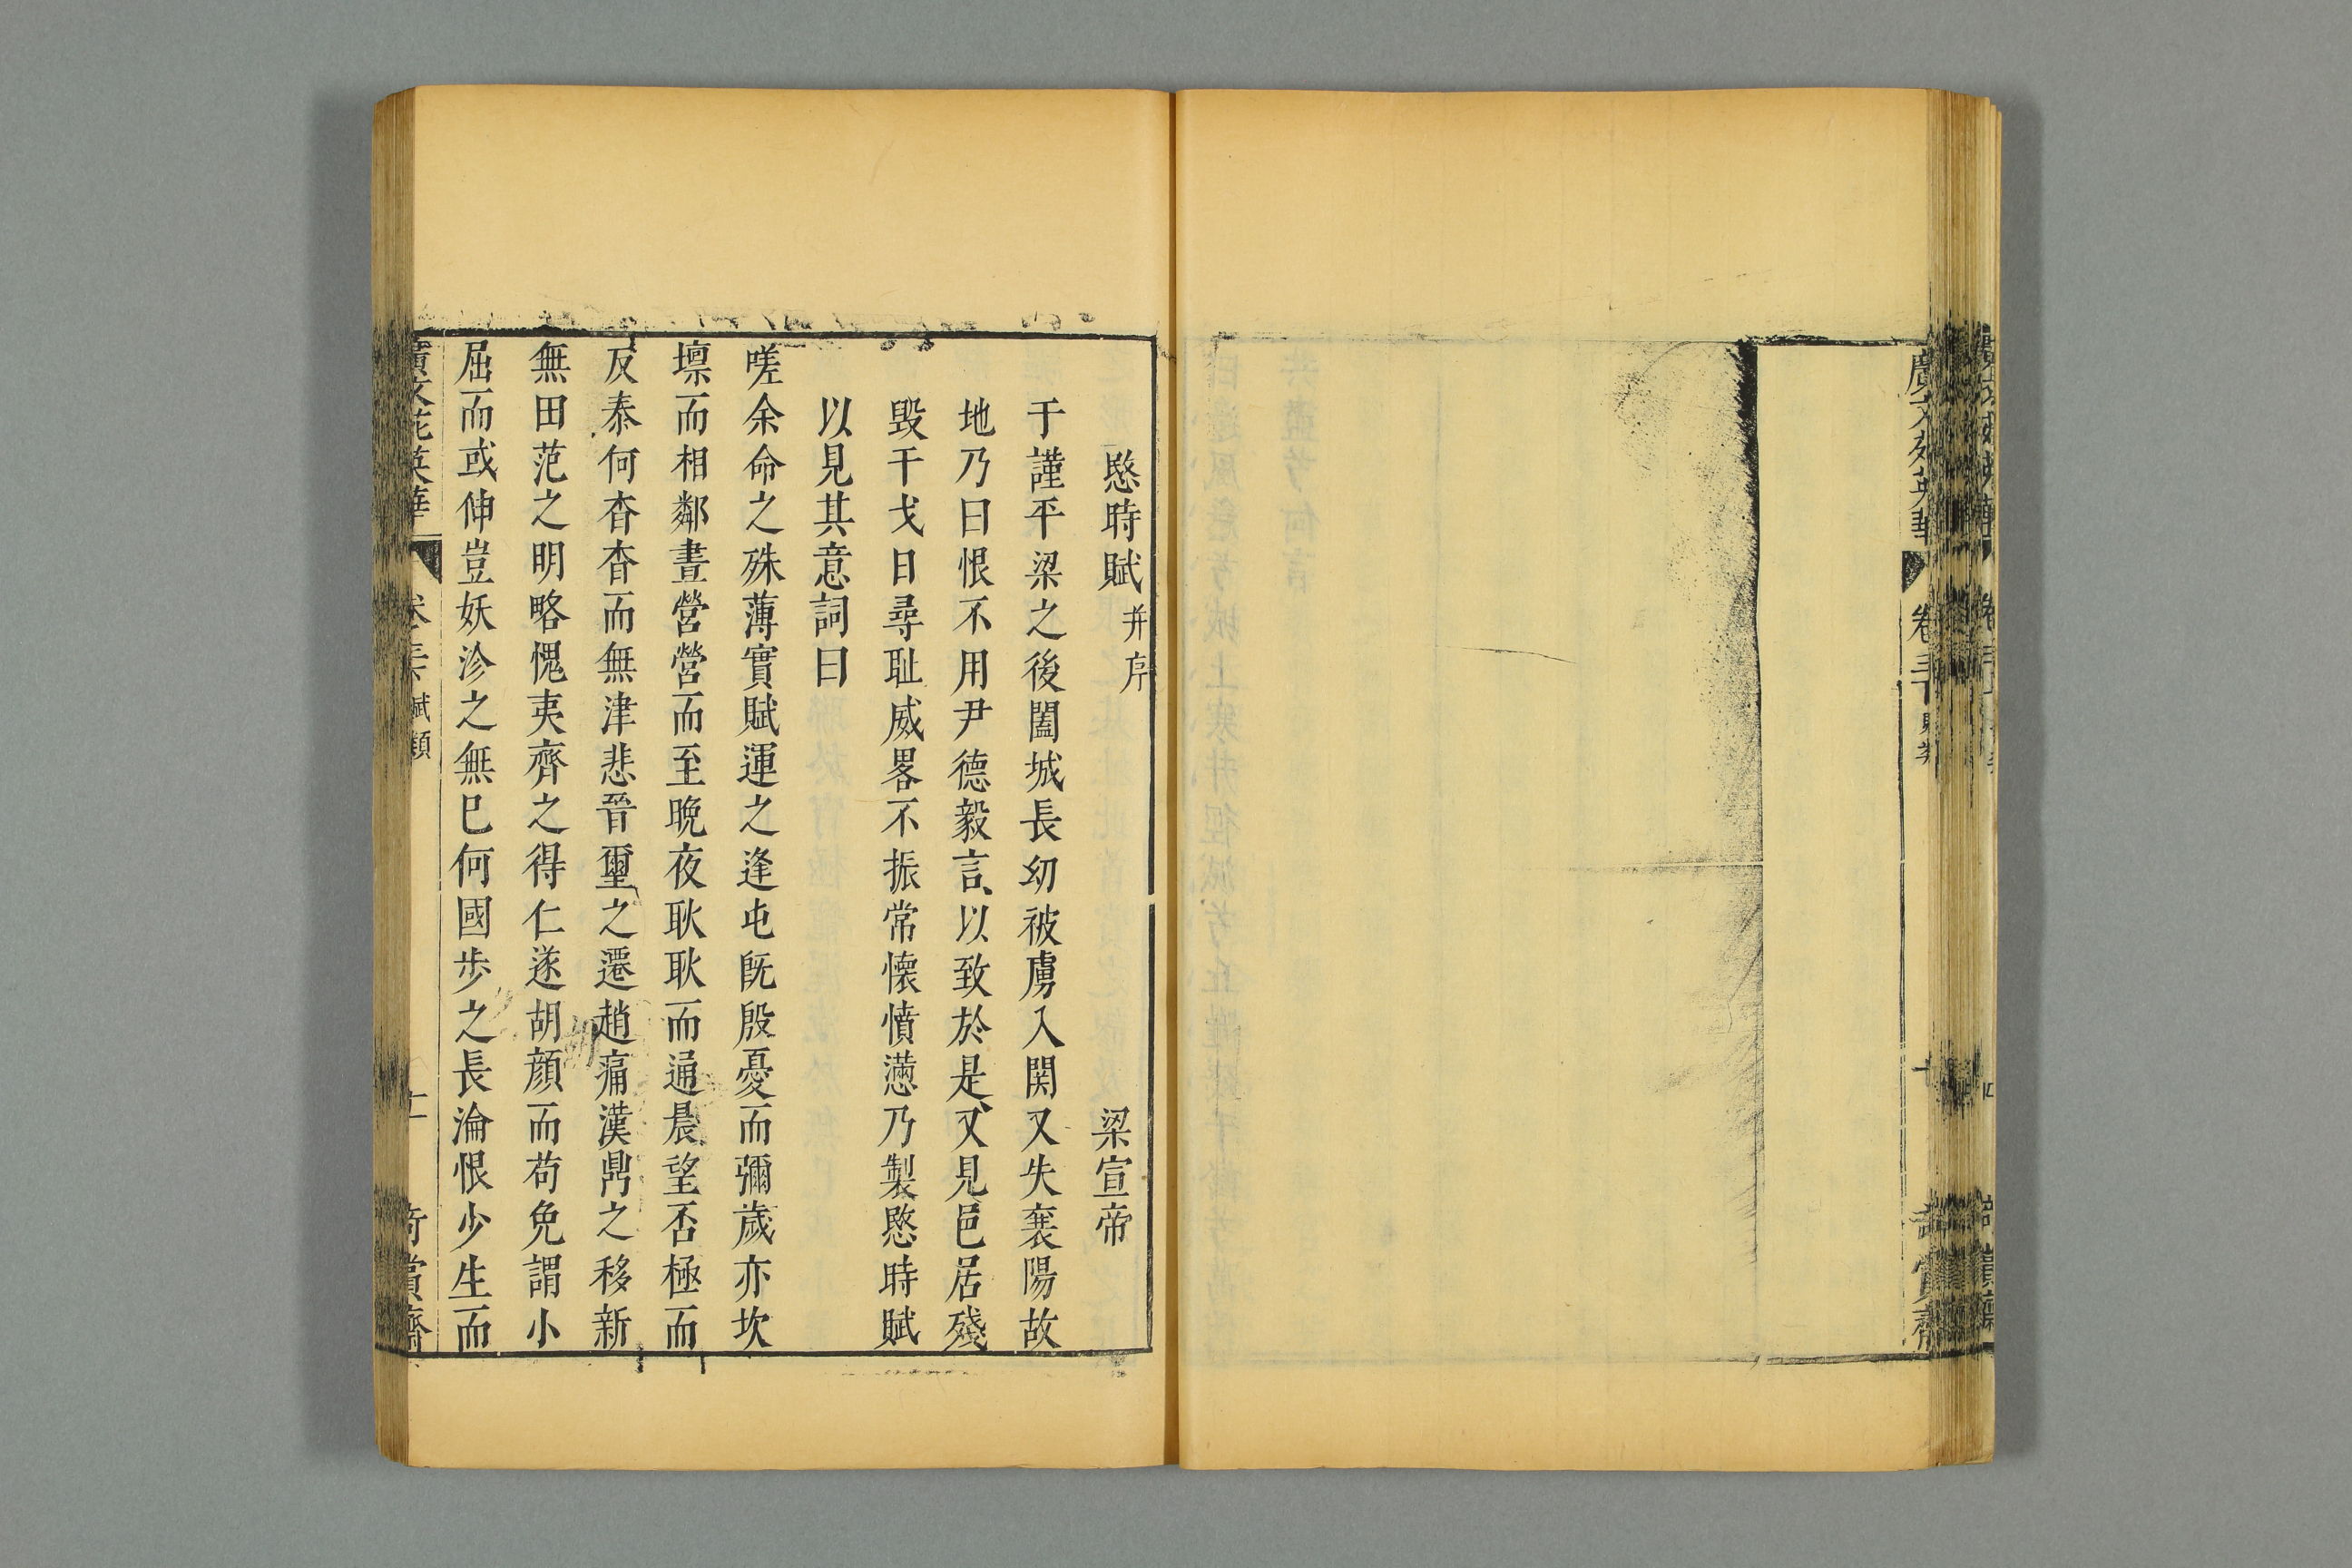 愍時賦并序　梁宣帝
于謹平梁之後闔城長幼被虜入関又失襄陽故
地乃曰恨不用尹德毅言、以致於是、又見邑居殘
毀干戈日尋耻威畧不振常懷憤懣乃製愍時賦
以見其意詞曰
嗟余命之殊薄實賦運之逢屯旣殷憂而彌歲亦坎
壈而相鄰晝營營而至晚夜耿耿而通晨望否極而
反泰何杳杳而無津悲晉璽之遷趙痛漢鼎之移新
無田范之明略愧夷齊之得仁遂胡顏而苟免謂小
屈而或伸豈妖沴之無巳何國步之長淪恨少生而
廣文苑英華 卷 賦類